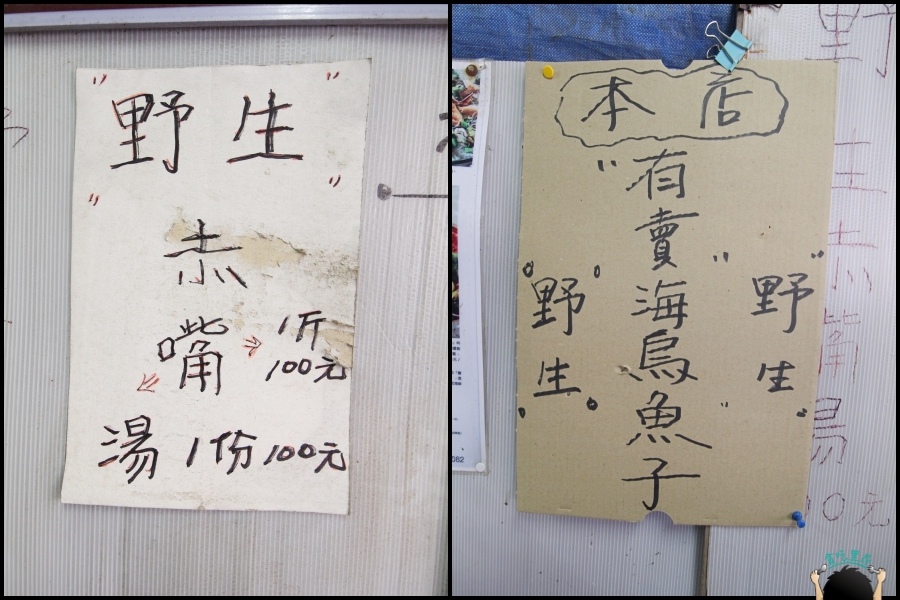 "野生"
"赤
嘴 → 1斤
100元
湯 1份100元
本店
"有賣海烏魚子"
"野生"
"野生"
野
生
赤
嘴
湯
00元
082